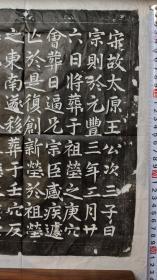 宋故太原王公次三子曰
宗則於元豐三年三月廿
六日將葬於祖塋之庚穴
會葬日逼兄宗臣感疾遽
亡於是復創新塋於祖塋
之東南遂移葬于壬穴反